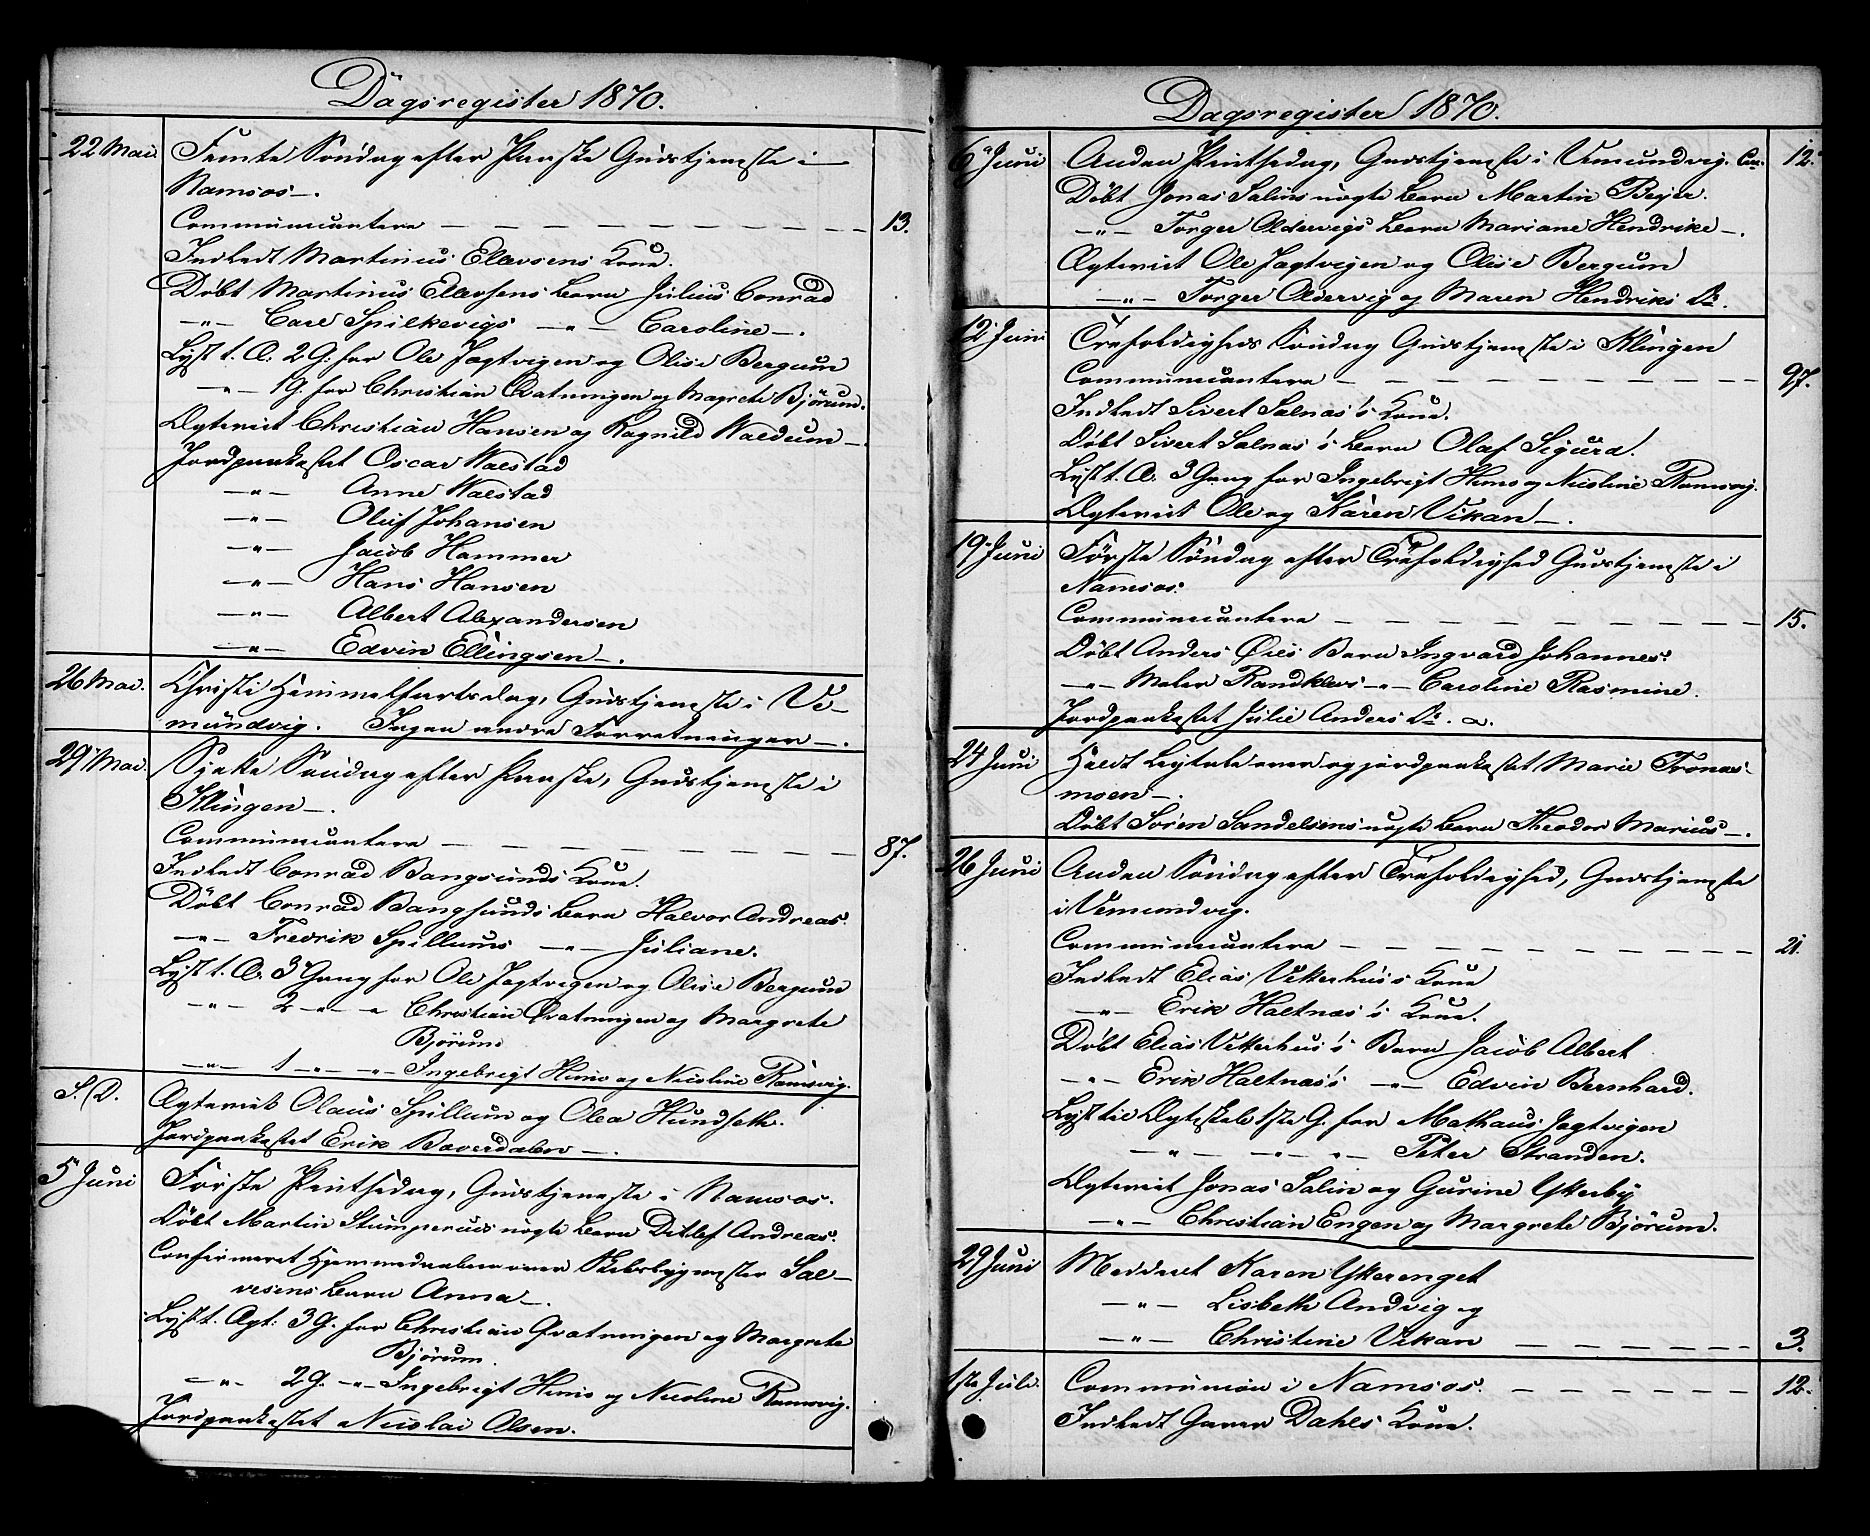 Dagsregister 1870.
22 Mai. Femte Søndag efter Paaske Gudstjeneste i
Namsos.
Communicanter 13.
Indledt Martinus Ellevsens Kone.
Døbt Martinus Ellevsens Barn Julius Conrad
—"— Carl Spilkevigs —"— Caroline.
Lyst t. Æ. 2 G. for Ole Jagtvigen og Olise Bergum
—"— 1 G. for Christian Qvatningen og Magrete Bjørum.
Ægteviet Christian Hansen og Ragnild Waldum
Jordpaakastet Oscar Walstad
—"— Anne Walstad
—"— Oluf Johansen
—"— Jacob Hammer
—"— Hans Hansen
—"— Albert Alexandersen
—"— Edvin Ellingsen.
26 Mai. Christi Himmelfartsdag, Gudstjeneste i Ve-
mundvig. Ingen andre Forretninger.
29 Mai. Sjette Søndag efter Paaske, Gudstjeneste i
Klingen.
Communicanter 87.
Indledt Conrad Bangsunds Kone.
Døbt Conrad Bangsunds Barn Halvor Andreas.
—"— Fredrik Spillums —"— Juliane.
Lyst t. Æ. 3 Gang for Ole Jagtvigen og Olise Bergum
—"— 2 —"— " Christian Qvatningen og Margrete
Bjørum
—"— 1 —"— —"— Ingebrigt Himo og Nicoline Ramsvig.
S. D. Ægteviet Olaus Spillum og Olea Hundseth.
Jordpaakastet Erik Baverdalen.
5 Juni Første Pintsedag, Gudstjeneste i Namsos.
Døbt Martin Stumperuds uægte Barn Ditlef Andreas.
Confirmeret Hjemmedaaben over Skibsbygmester Sal-
vesens Barn Anna.
Lyst t. Ægt. 3 G. for Christian Qvatningen og Margrete
Bjørum.
—"— 2 G. —"— Ingebrigt Himo og Nicoline Ramsvig.
Jordpaakastet Nicolai Olsen.
Dagsregister 1870.
6 Juni Anden Pintsedag, Gudstjeneste i Vemundvig. Com. 12.
Døbt Jonas Salins uægte Barn Martin Bejer.
—"— Torger Oldervigs Barn Mariane Hendrike.
Ægteviet Ole Jagtvigen og Olise Bergum
—"— Torger Oldervig og Maren Hendriks D.
12 Juni Trefoldigheds Søndag Gudstjeneste i Klingen
Communicanter 97.
Indledt Sivert Salnas's Kone.
Døbt Sivert Salnas's Barn Olaf Sigurd.
Lyst t. Æ. 3 Gang for Ingebrigt Himo og Nicoline Ramsvig.
Ægteviet Ole og Karen Vikan.
19 Juni Første Søndag efter Trefoldighed Gudstjeneste i
Namsos.
Communicanter 15.
Døbt Anders Øies Barn Ingvard Johannes.
—"— Maler Randklevs —"— Caroline Rasmine.
Jordpaakastet Julie Anders D.
24 Juni Holdt Ligtale over og jordpaakastet Marie Tronas-
moen.
Døbt Søren Sandelsens uægte Barn Theodor Marius.
26 Juni Anden Søndag efter Trefoldighed, Gudstjeneste
i Vemundvig.
Communicanter 21.
Indledt Elias Vitterhus's Kone
—"— Erik Haltnas's Kone.
Døbt Elias Vitterhus's Barn Jacob Albert
—"— Erik Haltnas's —"— Edvin Bernhard.
Lyst til Ægteskab 1ste G. for Mathaus Jagtvigen
—"— —"— —"— Peter Stranden.
Ægteviet Jonas Salin og Gurine Ytterby
—"— Christian Engen og Margrete Bjørum.
29 Juni Meddeelt Karen Ytterenget
—"— Lisbeth Andvig og
—"— Christine Vikan 3.
1ste Juli. Communion i Namsos. 12.
Indledt Garver Dahls Kone.